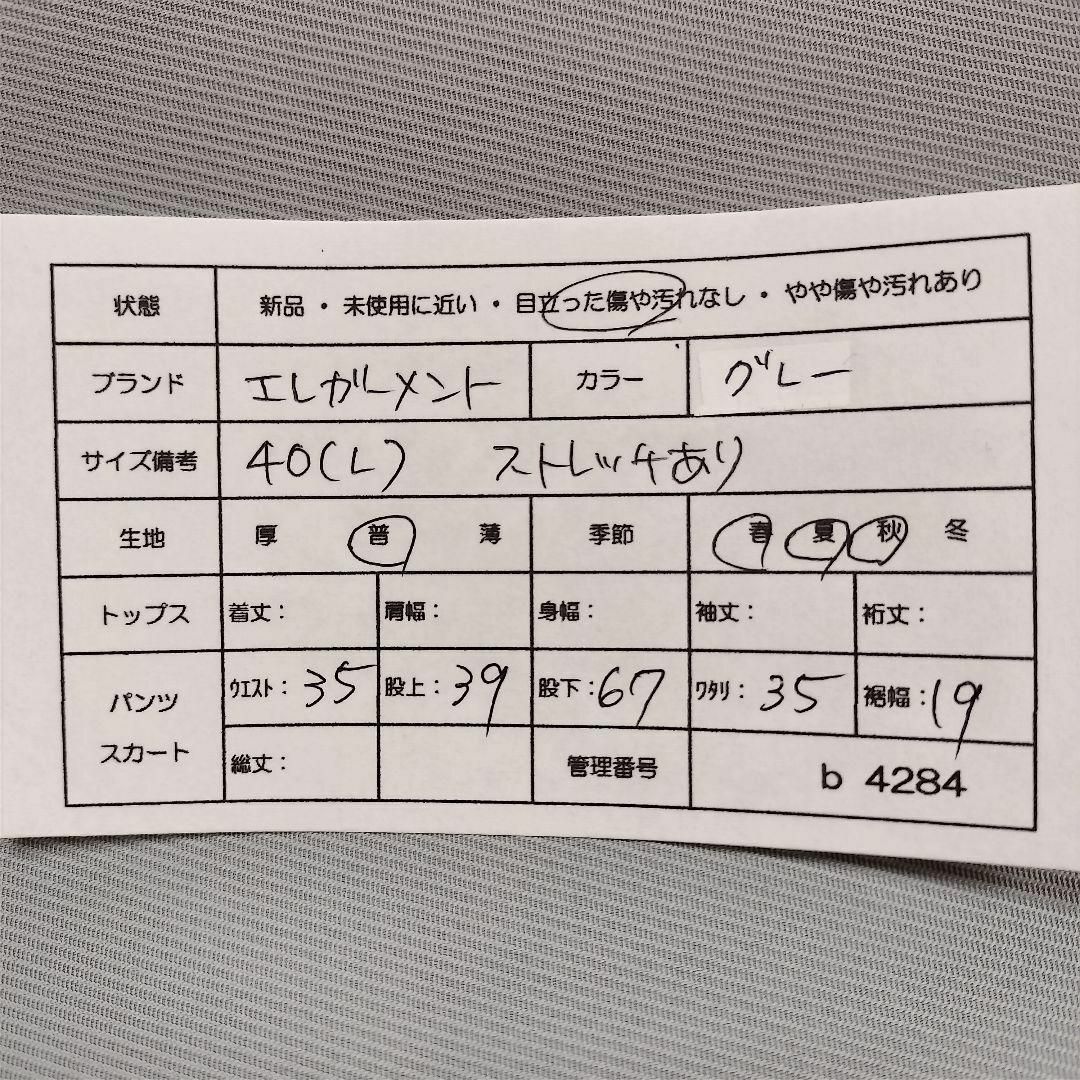 状態 新品・未使用に近い・目立った傷や汚れなし・やや傷や汚れあり
ブランド エレガーメント カラー グレー
サイズ備考 40(L) ストレッチあり
生地 厚 普 薄 季節 春 夏 秋 冬
トップス 着丈: 肩幅: 身幅: 袖丈: 裄丈:
パンツ ｳｴｽﾄ: 35 股上: 39 股下: 67 ﾜﾀﾘ: 35 裾幅: 19
スカート 総丈: 管理番号 b 4284